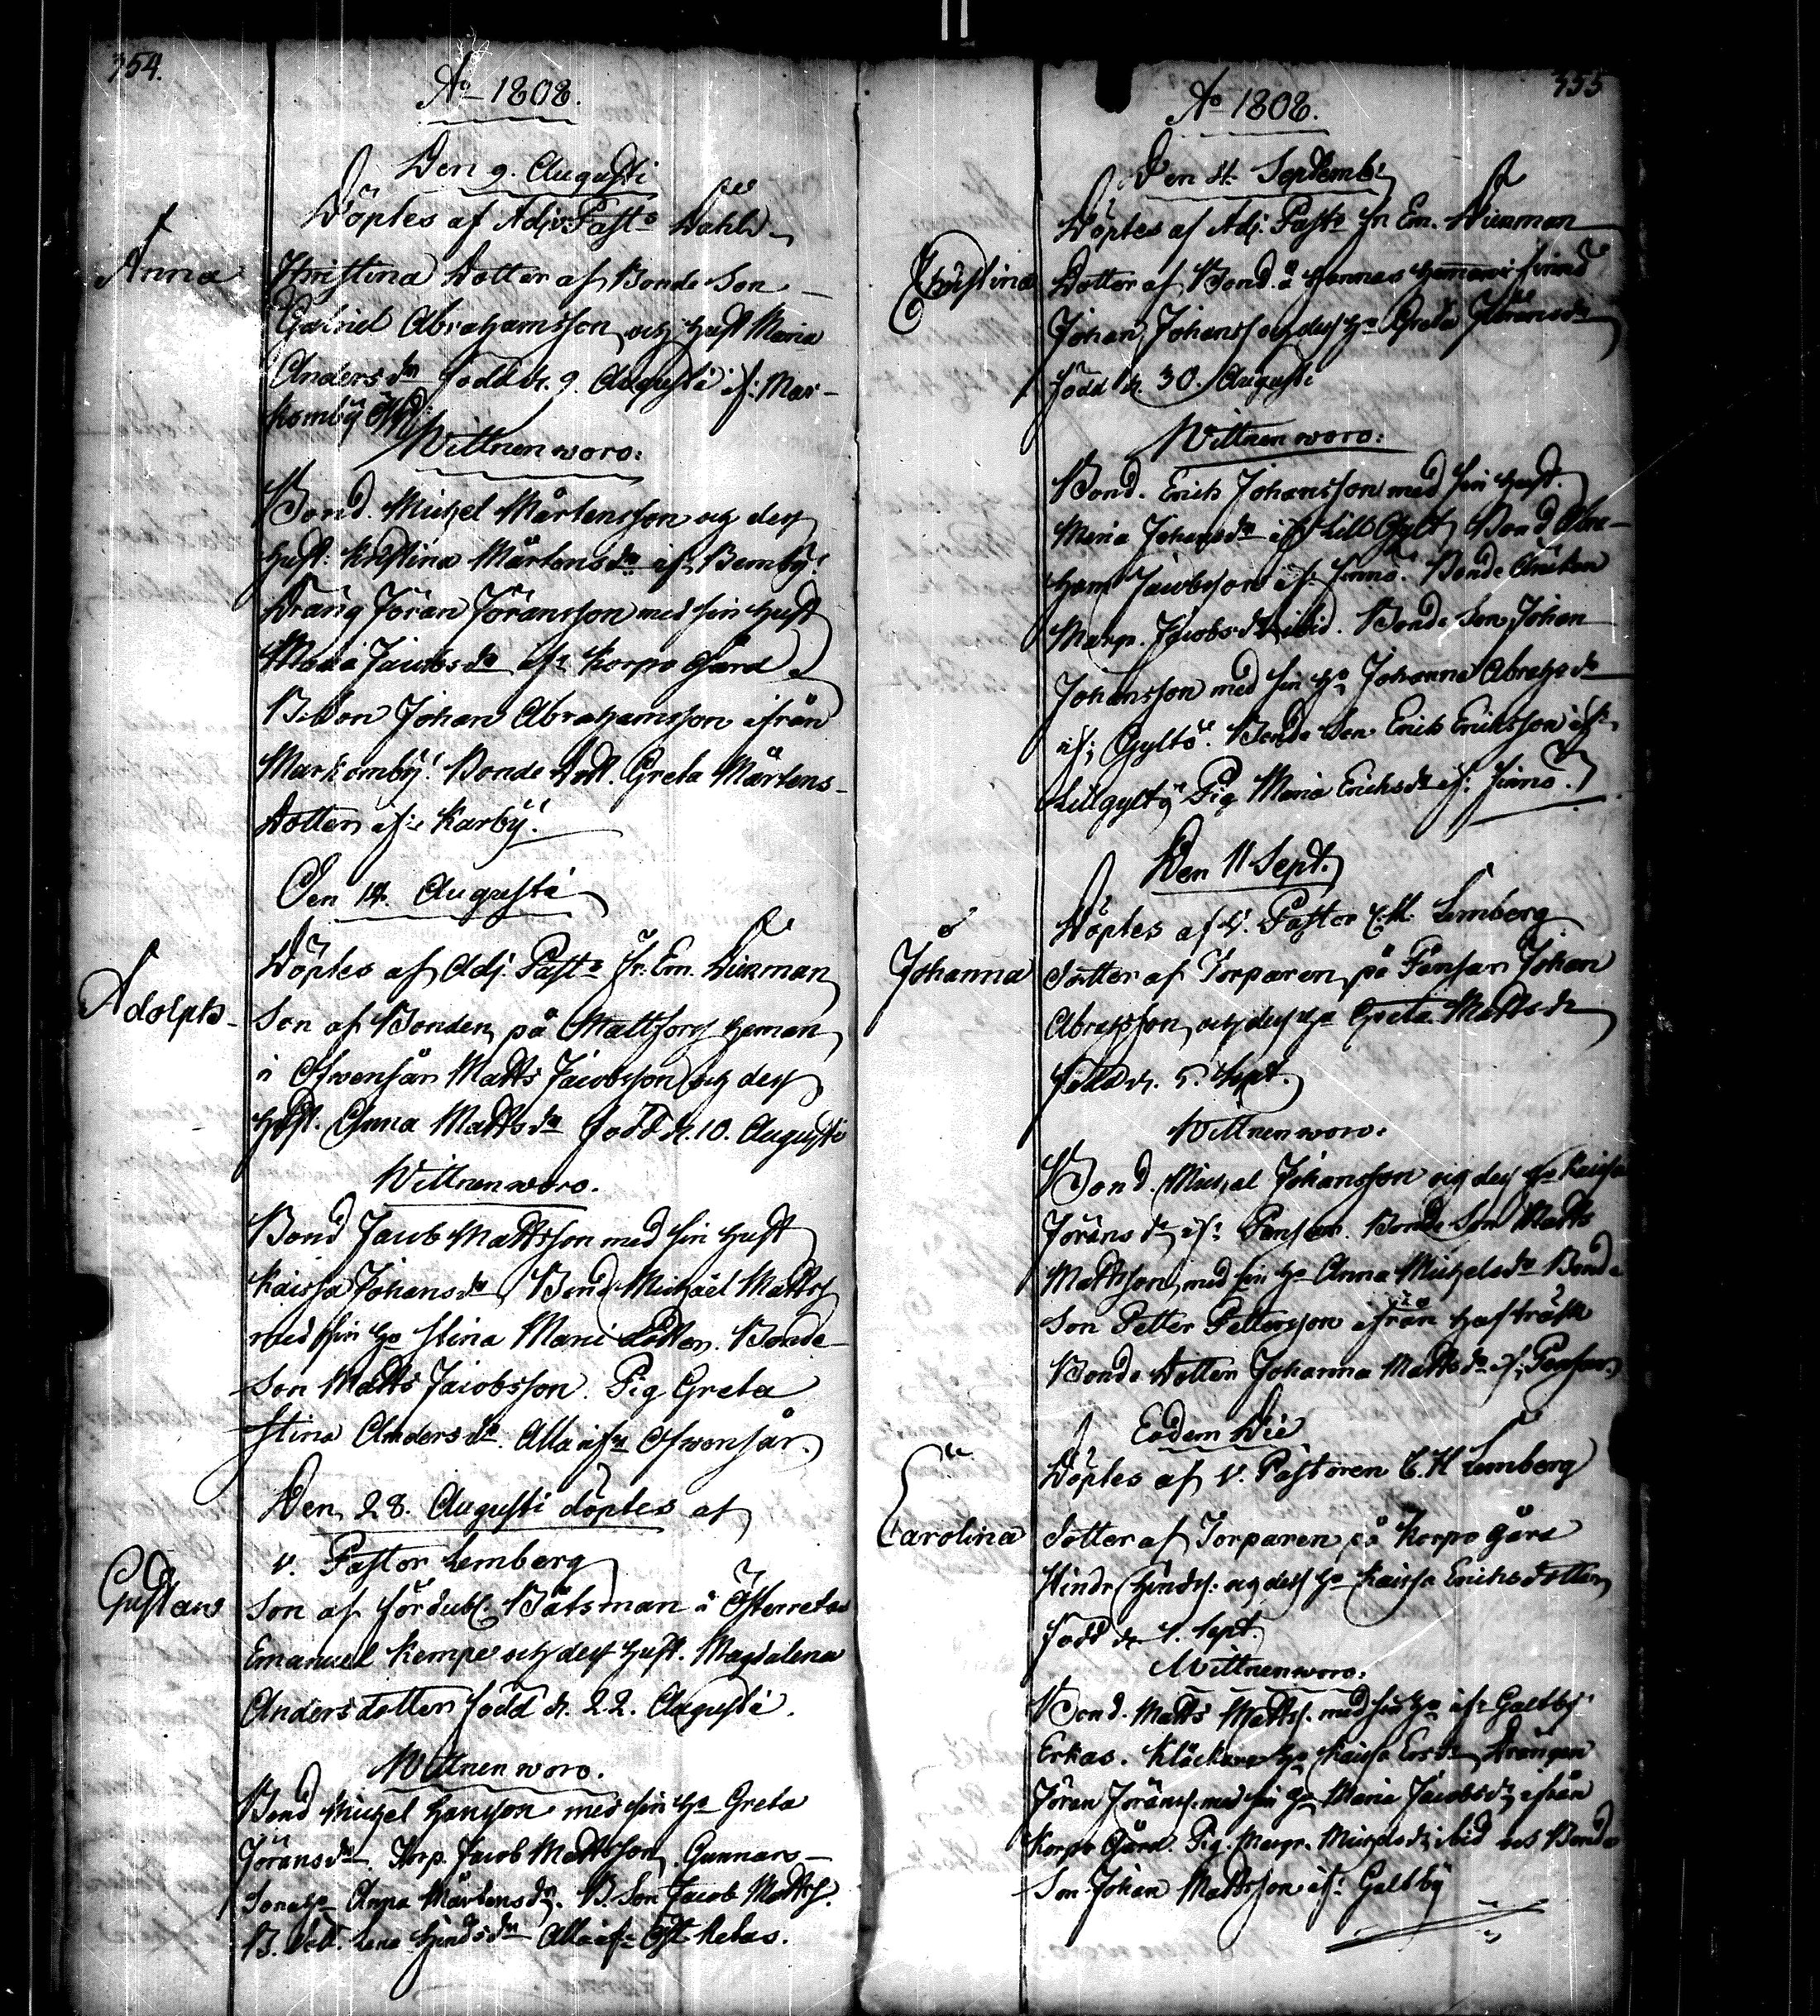 354.
Ao 1808.
Den 9. Augusti
Döptes af Adj. Pasto Dahl
Anna
Christina Dotter af Bonde Son
Gabriel Abrahamsson och hust Maria
Anders dr född d. 9. Augusti if: Mar-
komby
Wittnen woro:
Bond. Michel Mårtensson och dess
hust: Kristina Mårtens dr ifr Bemby!
Dräng Jöran Jöransson med sin hust
Maria Jacobs dr ifr Korpo Gård
B. Son Johan Abrahamsson ifrån
Markomby! Bonde Dott. Greta Mårtens-
dotter if:r Karby!
Den 14. Augusti
Döptes af Adj. Pasto Fr. Em. Wikman
Adolph
Son af Bonden på Mattsors heman
i Ofwensår Matts Jacobsson och dess
hust. Anna Matts dr född d. 10. Augusti
Wittnen woro.
Bond Jacob Mattsson med sin hust
Kaisa Johans dr Bond Michael Matts
med sin ho Stina Mari dotter. Bonde
Son Matts Jacobsson. Pig Greta
Stina Anders dr. Alla ifr Ofwensår.
Den 28. Augusti döptes af
v. Pastor Lemberg
Gustaw
Son af fördubl. Båtsman i Österretas
Emanuel Kempe och dess hust. Magdalena
Anders dotter född d. 22. Augusti.
Wittnen woro.
Bond Michel Hansson med sin ho Greta
Jörans dr. Torp. Jacob Mattsson. Gunnars-
sons ho Anna Mårtens dr. B. Son Jacob Matts.
B. dott. Lena Hinds dr Alla ifr Öst Retas.
355
Ao 1808.
Den 4. Septemb:
Döptes af Adj. Pasto Fr. Em. Wikman
Christina
Dotter af Bond. å Hannas heman i Finnö
Johan Johans och dess ho Greta Jörans dr
född d. 30. Augusti
Wittnen woro:
Bond. Erich Johansson med sin hust.
Maria Johans dr if: Lill Gylt, Bond Abra-
ham Jacobsson if: Finnö. Bonde Änkan
Margr. Jacobs dr ibid. Bonde Son Johan
Johansson med sin ho Johanna Abrahs dr
if: Gyltö. Bonde Son Erich Erichsson if:
Lillgyltö Pig Maria Erichs dr if: Finnö.
Den 11 Sept.
Döptes af V. Pastor C. H. Lemberg
Johanna
Dotter af Torparen på Pensar Johan
Abrahsson och dess ho Greta Matts dr
född d. 5. Sept.
Wittnen woro:
Bond. Michel Johansson och dess ho Kaisa
Jörans dr if: Pensar. Bonde Son Matts
Mattsson, med sin ho Anna Michels dr Bonde
Son Petter Pettersson ifrån Hafträsk
Bonde Dotter Johanna Matts dr if: Pensar
Eodem Die
Döptes af V. Pastoren C. H Lemberg
Carolina
Dotter af Torparen på Korpo gård
Hindr Hinds: och dess ho Kaisa Erichs dotter
född d. 1. Sept.
Wittnen woro:
Bond. Matts Matts. med sin ho ifr Galtby
Erkas. Klåckare ho Kaisa Ers dr, Drängen
Jöran Jörans. med sin ho Maria Jacobs dr ifrån
Korpo Gård. Pig. Margr. Michels dr ibid och Bonde
Son Johan Mattsson if: Galtby